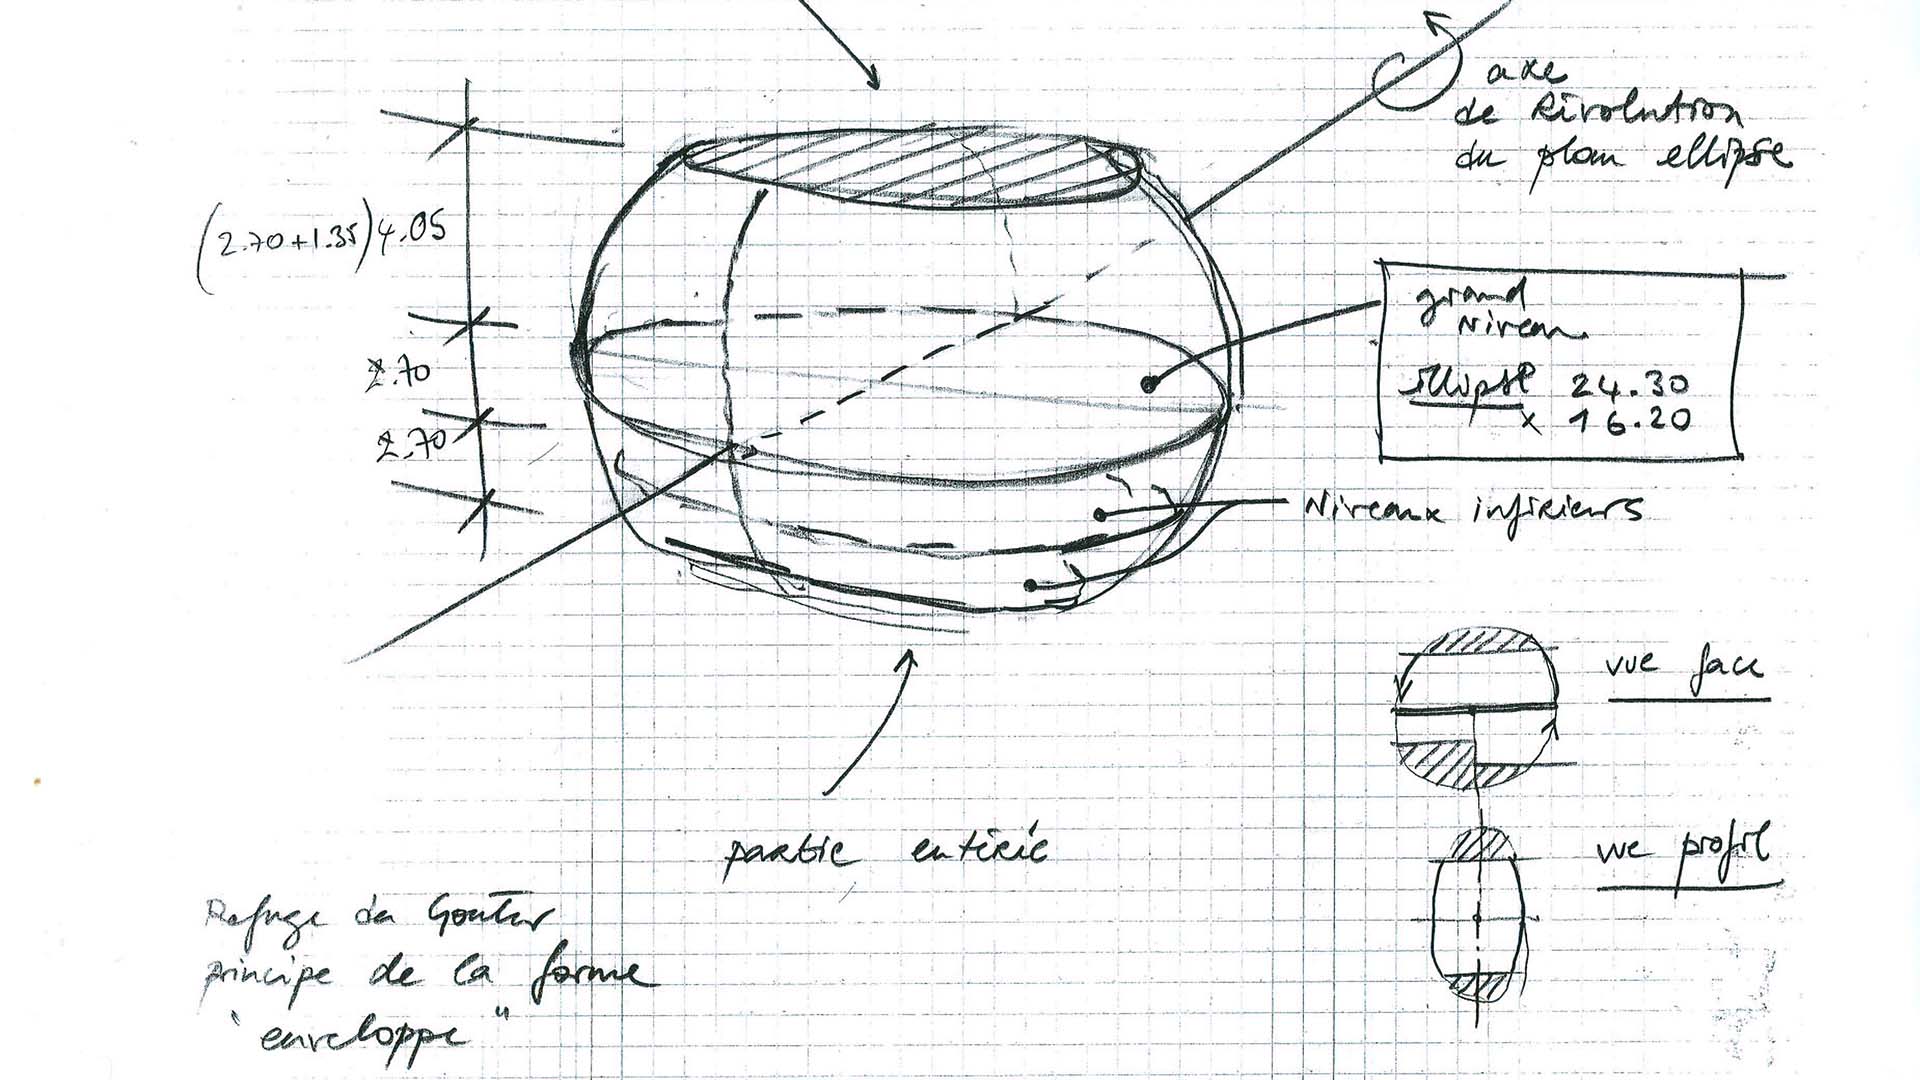 axe
de Révolution
du plan ellipse
(2.70+1.35) 4.05
grand
Niveau
2.70
ellipse 24.30
x 16.20
2.70
Niveaux inférieurs
vue face
partie entérié
vue profil
Refuge du Goûter
principe de la forme
"enveloppe"